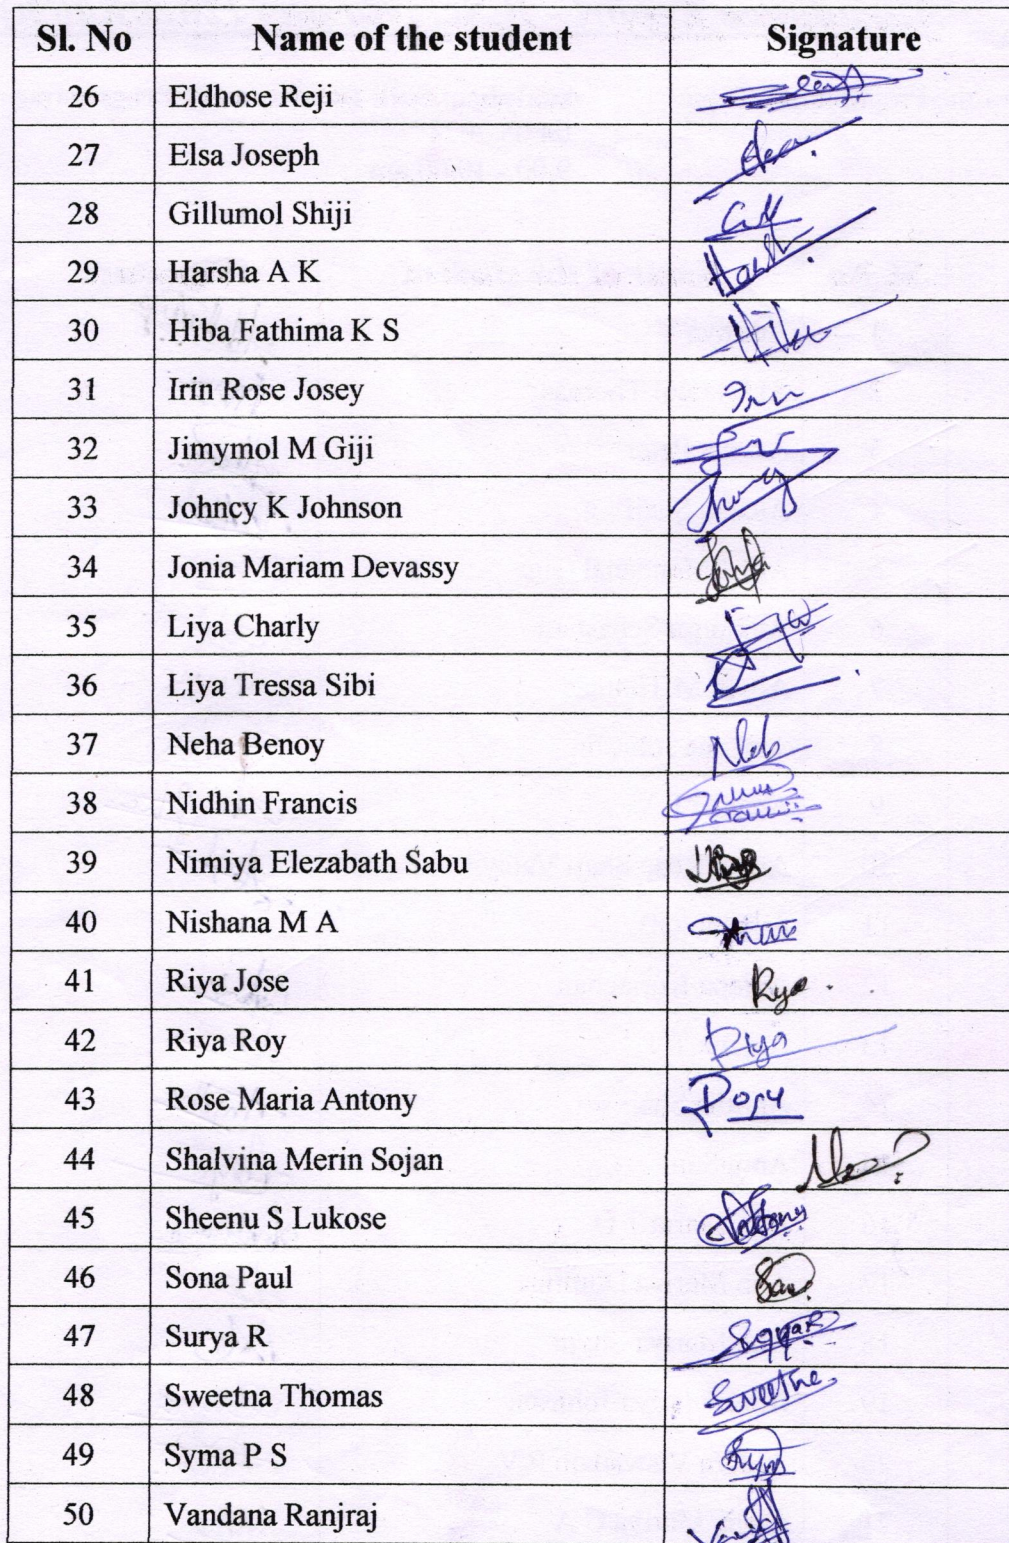 Sl. No Name of the student Signature
26 Eldhose Reji
27 Elsa Joseph
28 Gillumol Shiji
29 Harsha A K
30 Hiba Fathima K S Hiba
31 Irin Rose Josey Irin
32 Jimymol M Giji
33 Johncy K Johnson
34 Jonia Mariam Devassy
35 Liya Charly
36 Liya Tressa Sibi
37 Neha Benoy
38 Nidhin Francis
39 Nimiya Elezabath Sabu
40 Nishana M A
41 Riya Jose
42 Riya Roy Riya
43 Rose Maria Antony
44 Shalvina Merin Sojan
45 Sheenu S Lukose
46 Sona Paul
47 Surya R
48 Sweetna Thomas Sweetna
49 Syma P S
50 Vandana Ranjraj